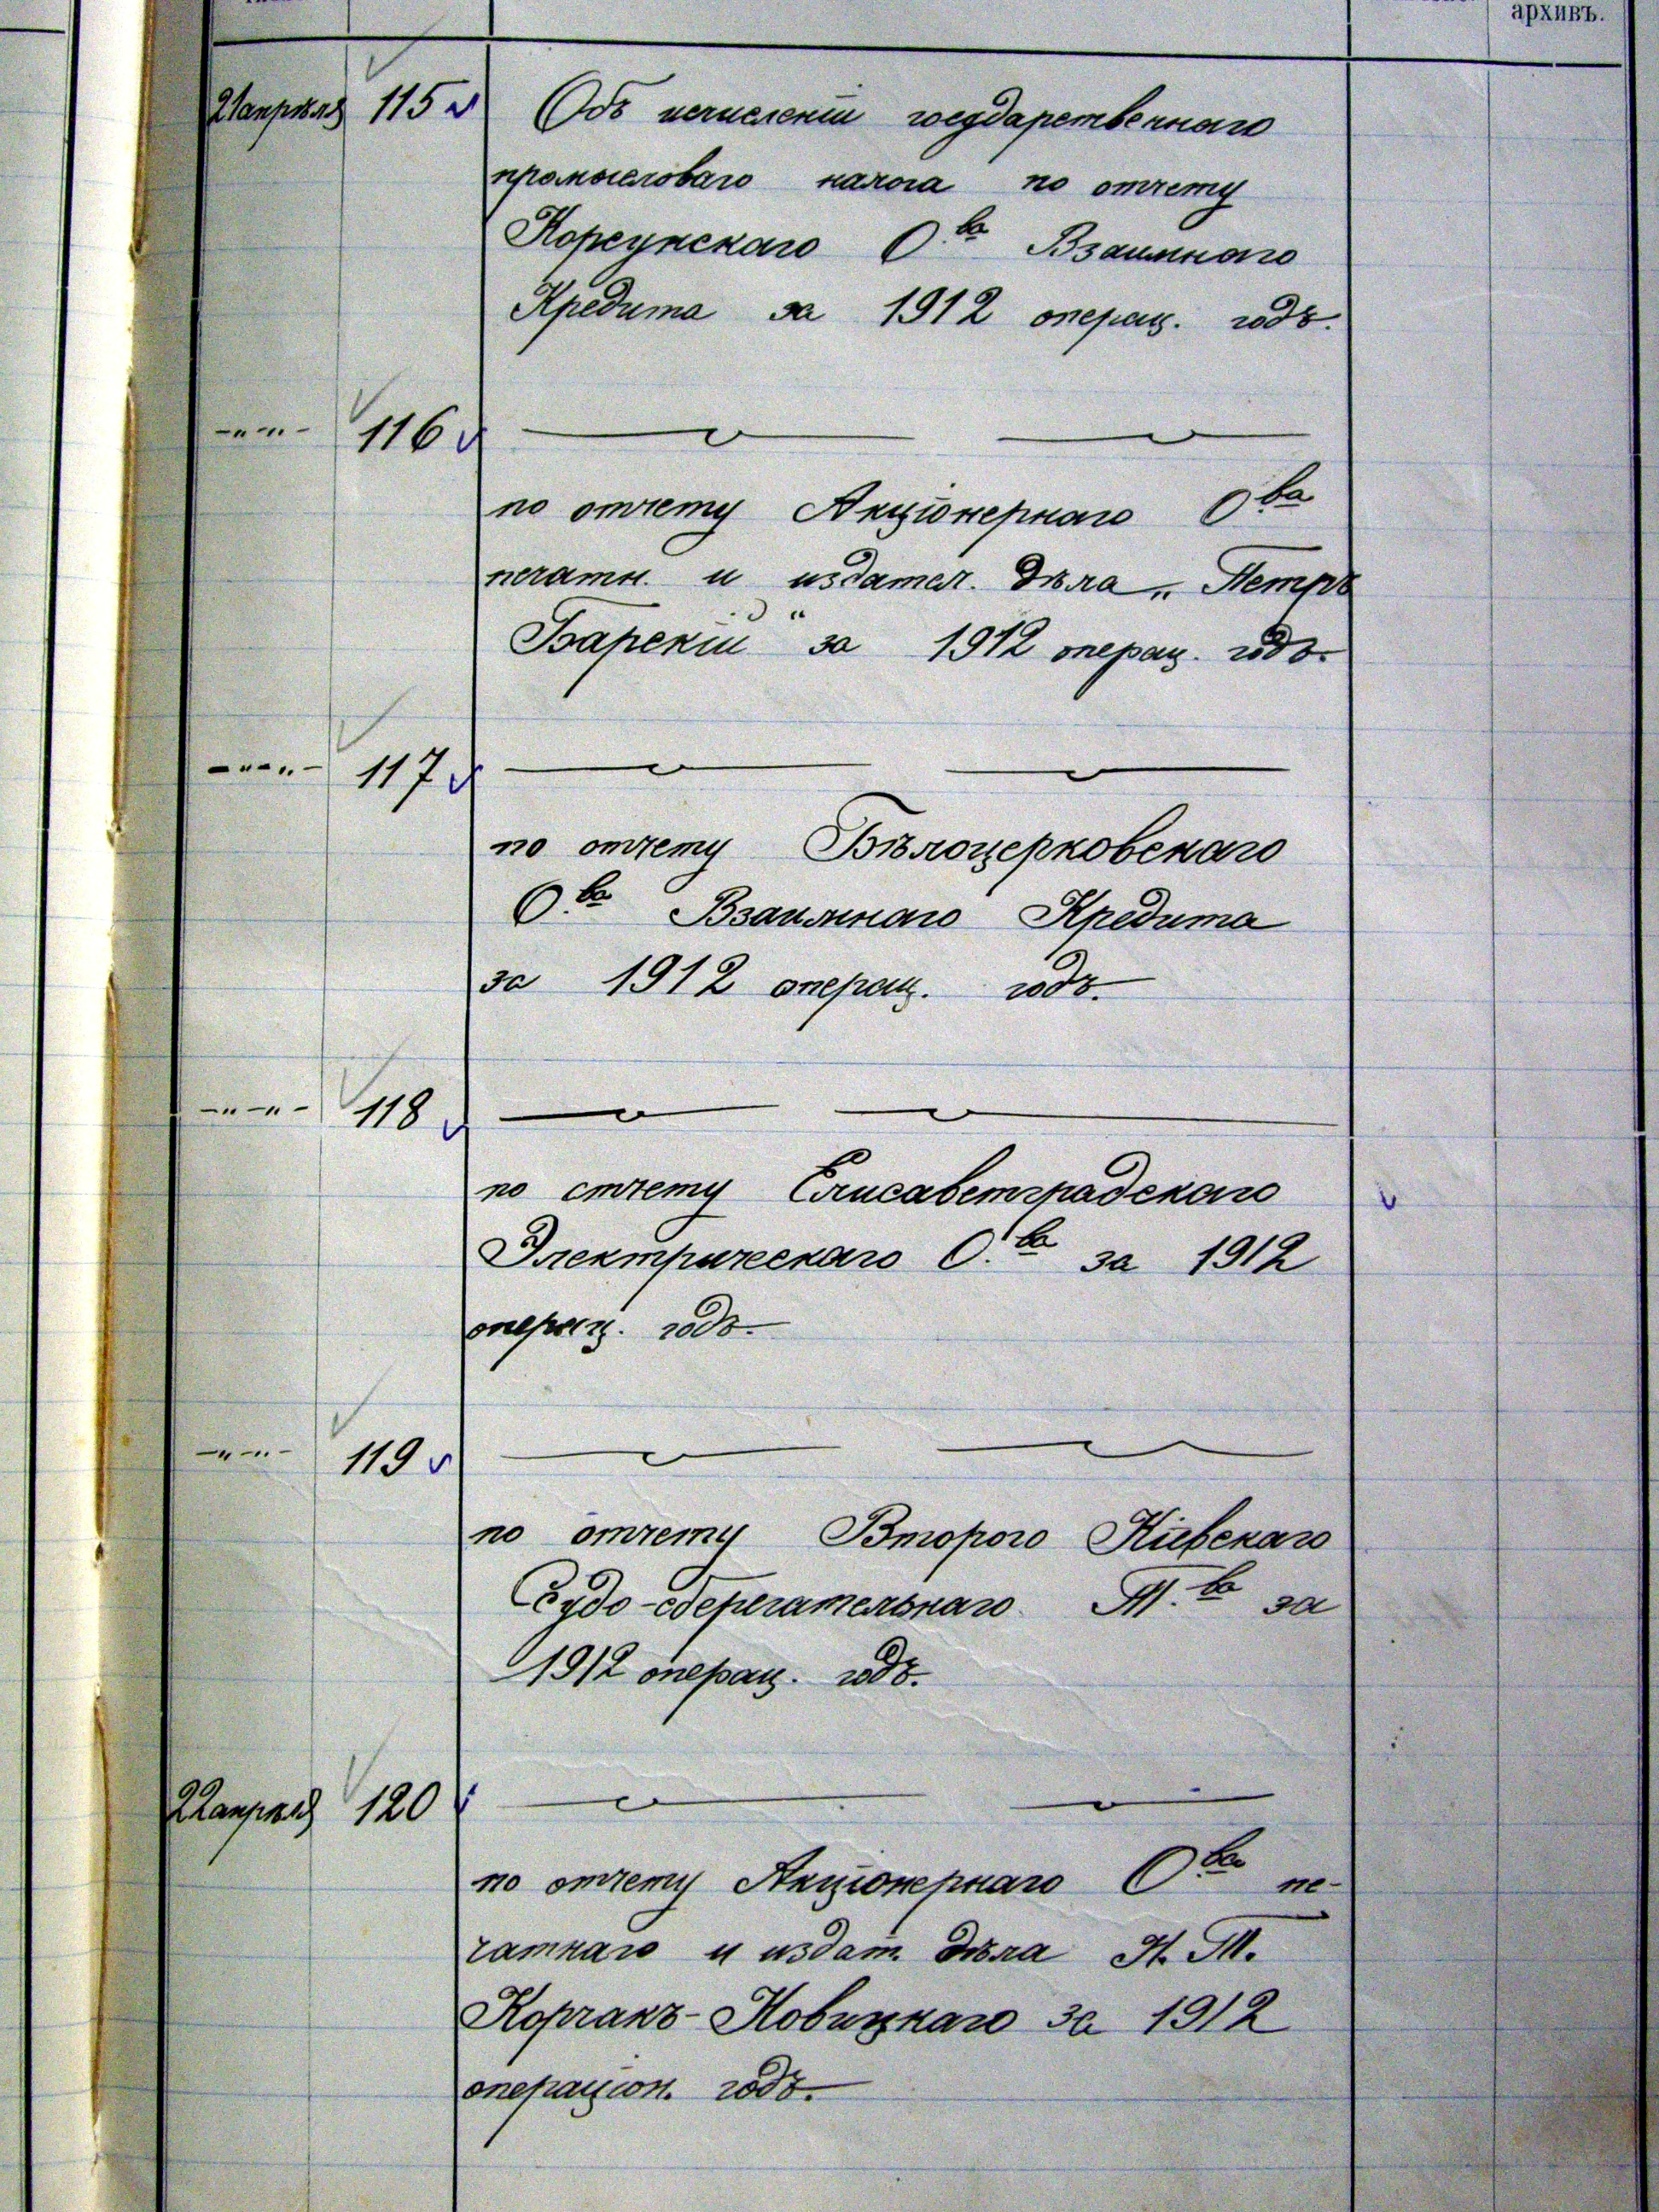 архивъ.
21 апрѣля 115 Объ исчисленіи государственнаго
промысловаго налога по отчету
Корсунскаго О.ва Взаимнаго
Кредита за 1912 операц. годъ.
-"-"- 116
по отчету Акціонернаго О.ва
печатн. и издател. дѣла „Петръ
Барскій" за 1912 операц. годъ.
-"-"- 117
по отчету Бѣлоцерковскаго
О.ва Взаимнаго Кредита
за 1912 операц. годъ.
-"-"- 118
по отчету Елисаветградскаго
Электрическаго О.ва за 1912
операц. годъ.
-"-"- 119
по отчету Второго Кіевскаго
Ссудо-сберегательнаго Т.ва за
1912 операц. годъ.
22 апрѣля 120
по отчету Акціонернаго О.ва пе-
чатнаго и издат. дѣла Н. Т.
Корчакъ-Новицкаго за 1912
операціон. годъ.